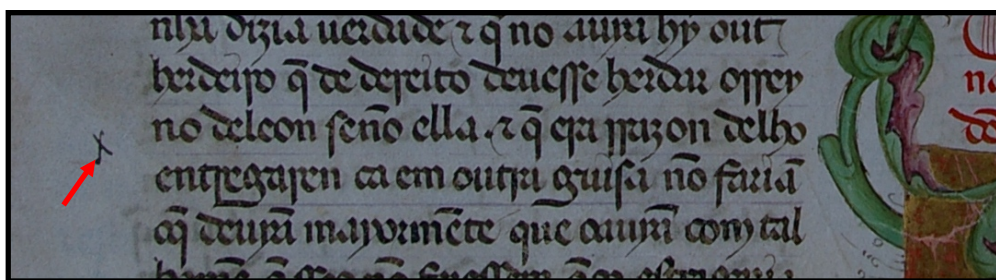 nha dizia uerdade ⁊ q̃ no auia hy out
herdeiro q̃ de dereito deuesse herdar o rrey
no deleon seño ella. ⁊ q̃ era rrazon delho
x
entregaren ca em outra guisa nõ fariã
oq̃ deuiã mayormẽte que auiã com tal
na
dẽ